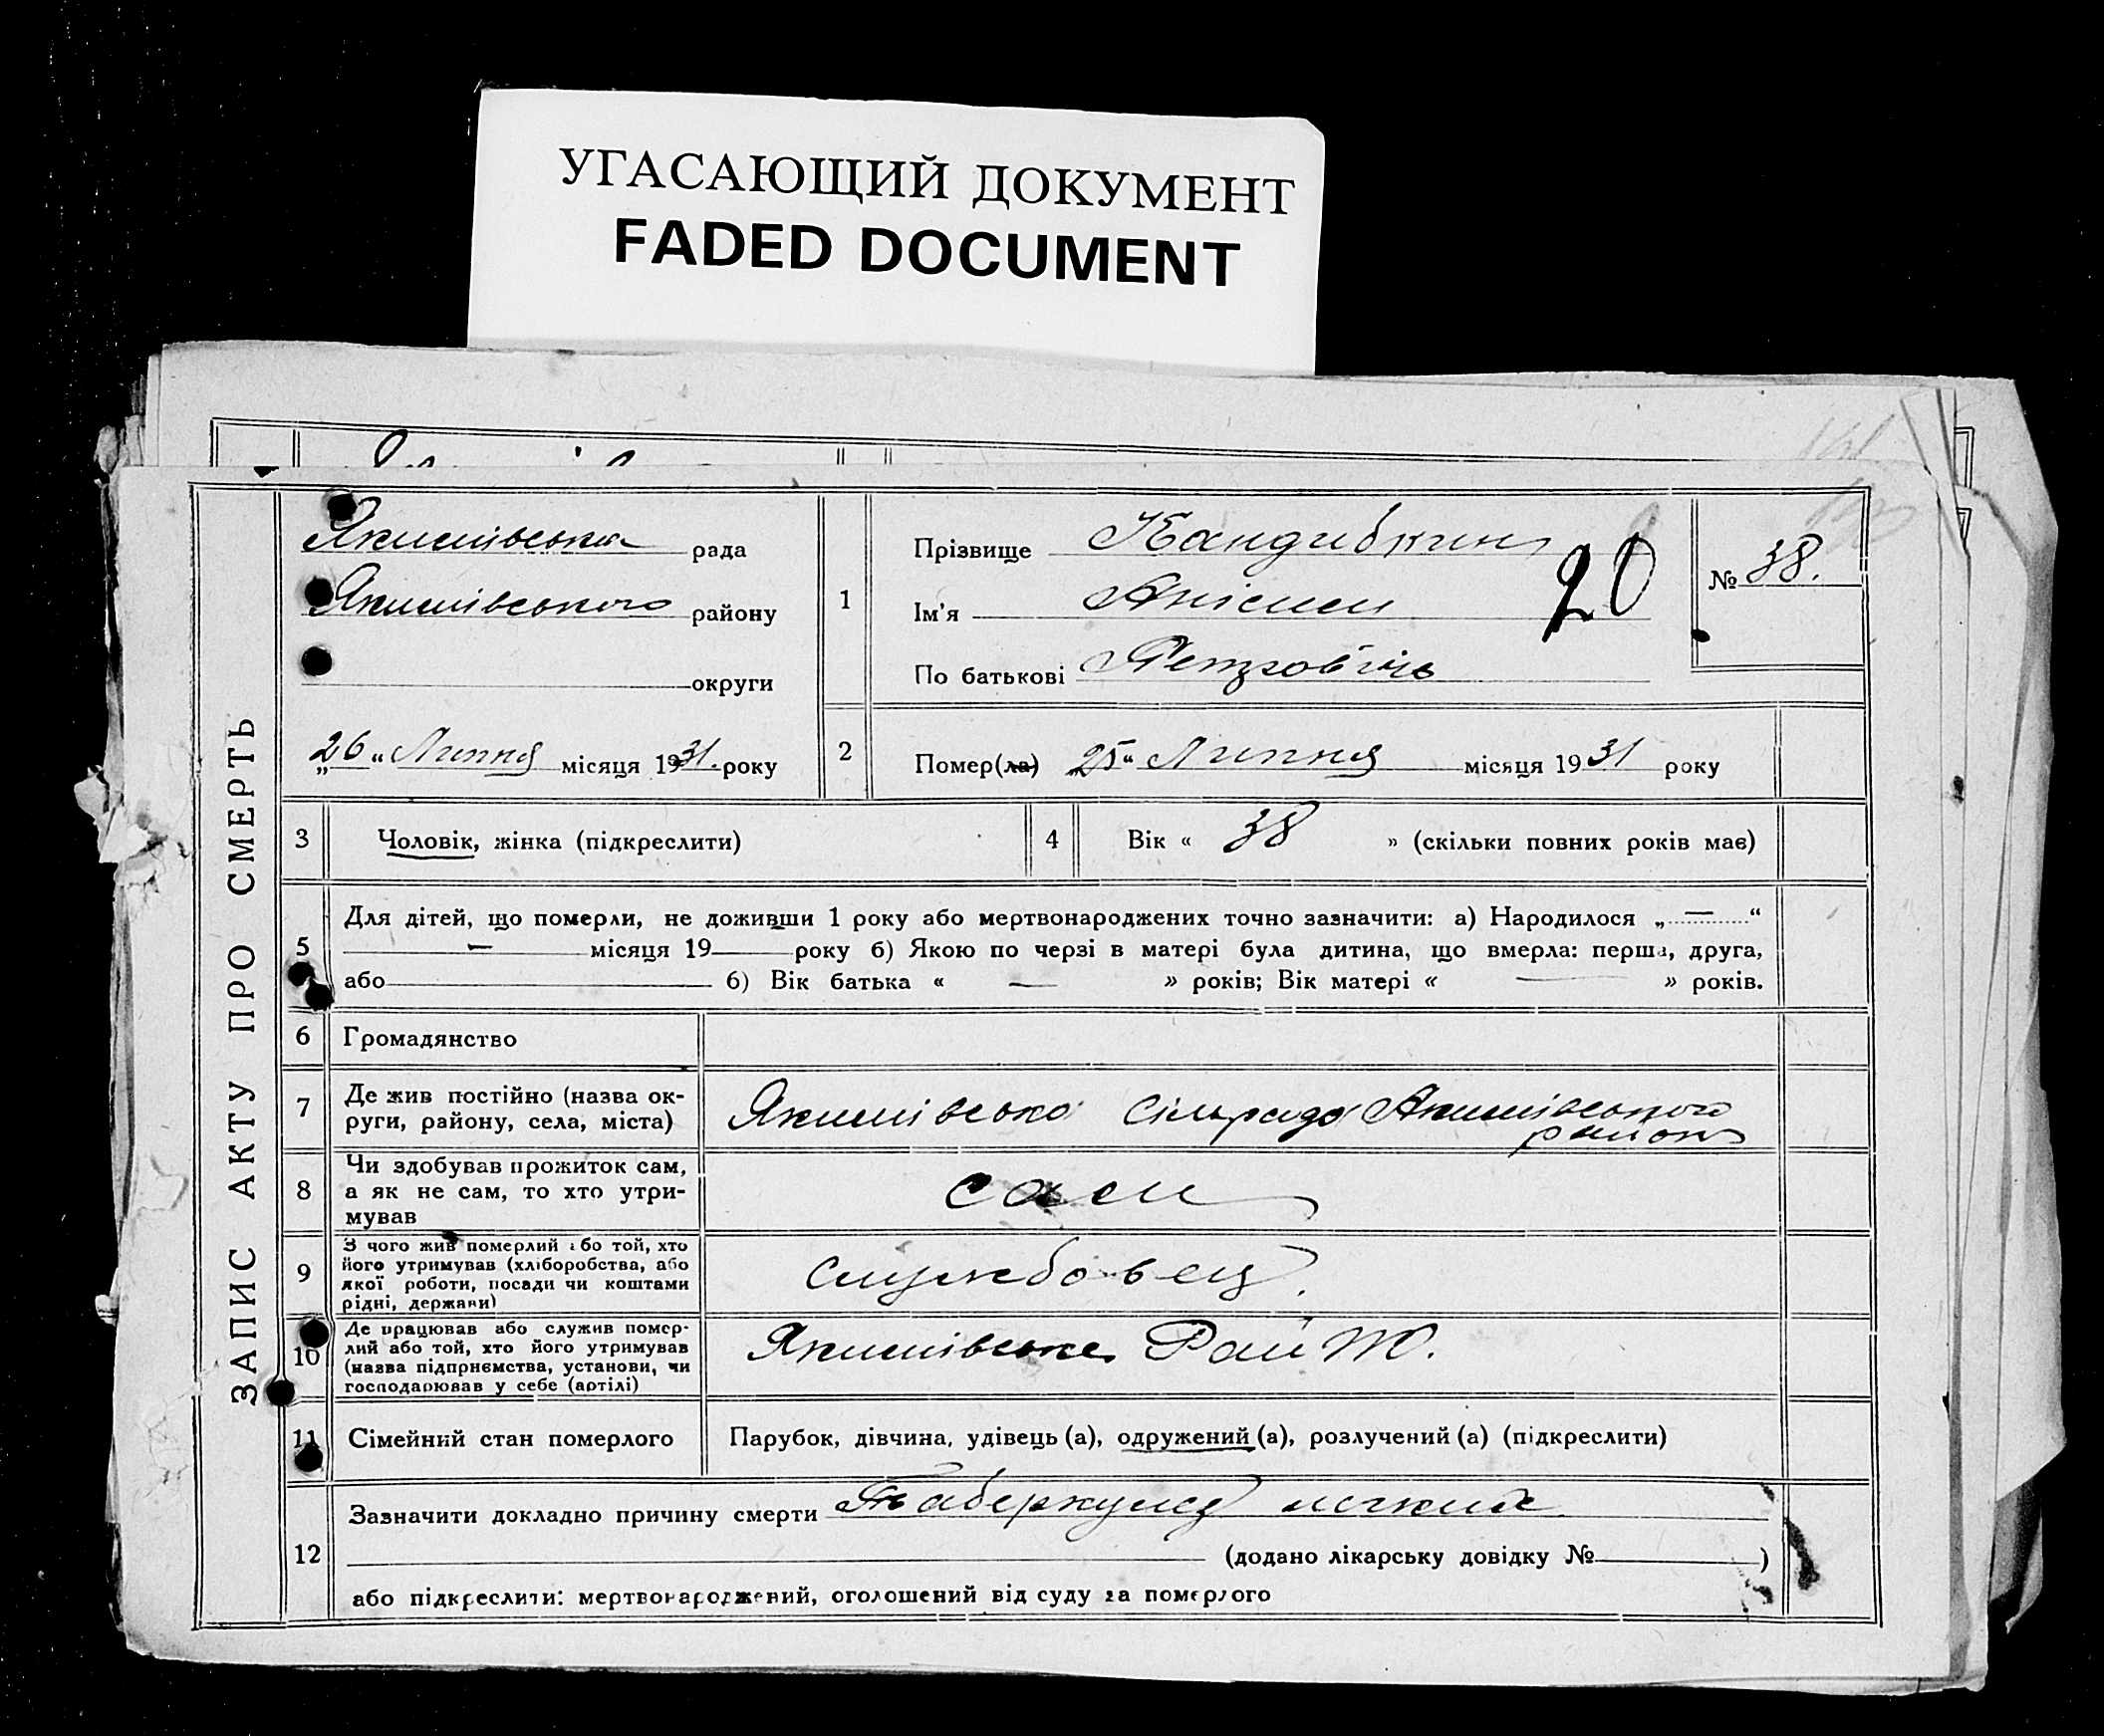 УГАСАЮЩИЙ ДОКУМЕНТ
FADED DOCUMENT
ЗАПИС АКТУ ПРО СМЕРТЬ
Якимівська рада
Якимівського району
округи
„26“ Липня місяця 1931. року
1
Прізвище Кандибкин
Ім'я Анісим
По батькові Петрович
20
№ 38.
2
Помер(ла) „25“ Липня місяця 1931 року
3 Чоловік, жінка (підкреслити)
4 Вік « 38 » (скільки повних років має)
5
Для дітей, що померли, не доживши 1 року або мертвонароджених точно зазначити: а) Народилося „ — “
— місяця 19 року б) Якою по черзі в матері була дитина, що вмерла: перша, друга,
або 6) Вік батька « — » років; Вік матері « — » років.
6 Громадянство
7
Де жив постійно (назва ок-
руги, району, села, міста)
Якимівсько Сільрада Якимівського
району
8
Чи здобував прожиток сам,
а як не сам, то хто утри-
мував
сам
9
З чого жив померлий або той, хто
його утримував (хліборобства, або
якої роботи, посади чи коштами
рідні, держави)
службовец.
10
Де працював або служив помер-
лий або той, хто його утримував
(назва підприємства, установи, чи
господарював у себе (артілі)
Якимівське Рай
11 Сімейний стан померлого
Парубок, дівчина, удівець (а), одружений (а), розлучений (а) (підкреслити)
12
Зазначити докладно причину смерти
(додано лікарську довідку № )
або підкреслити: мертвонароджений, оголошений від суду за померлого